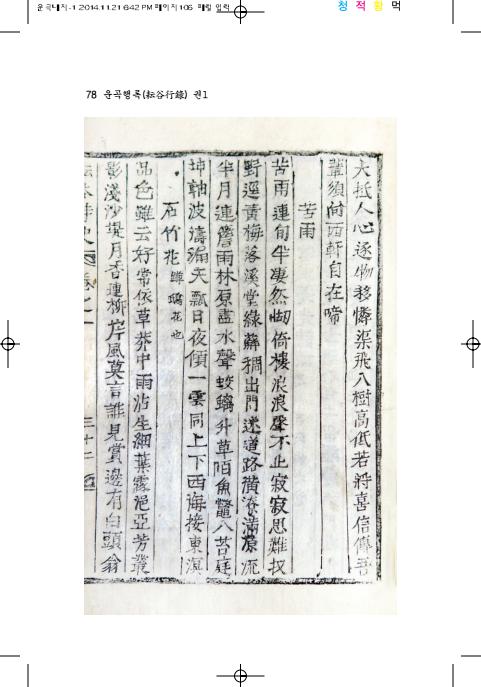 운곡대지-1 2014.11.21 6:42 PM 페이지106 패컬 입력
청 적 황 먹
78 운곡행록(耘谷行錄) 권1
大抵人心逐物移憐渠飛入樹高低若將喜信傳吾
輩須向西軒自在啼
苦雨
苦雨連旬半凄然㘭倚樓浪浪聲不止寂寂思難收
野逕黃梅落溪堂綠蘚稠出門迷道路潢潦滿原流
半月連簷雨林原盡水聲蚊螭升草陌魚鼈入苔庭
坤軸波濤漏天瓢日夜傾一雲同上下西海接東溟
石竹花 蹲鴟花也
品色雖云好常依草莽中雨沾生細葉露浥亞芳叢
影淺沙堤月香連柳岸風莫言誰見賞邊有白頭翁
卷之一 三十二